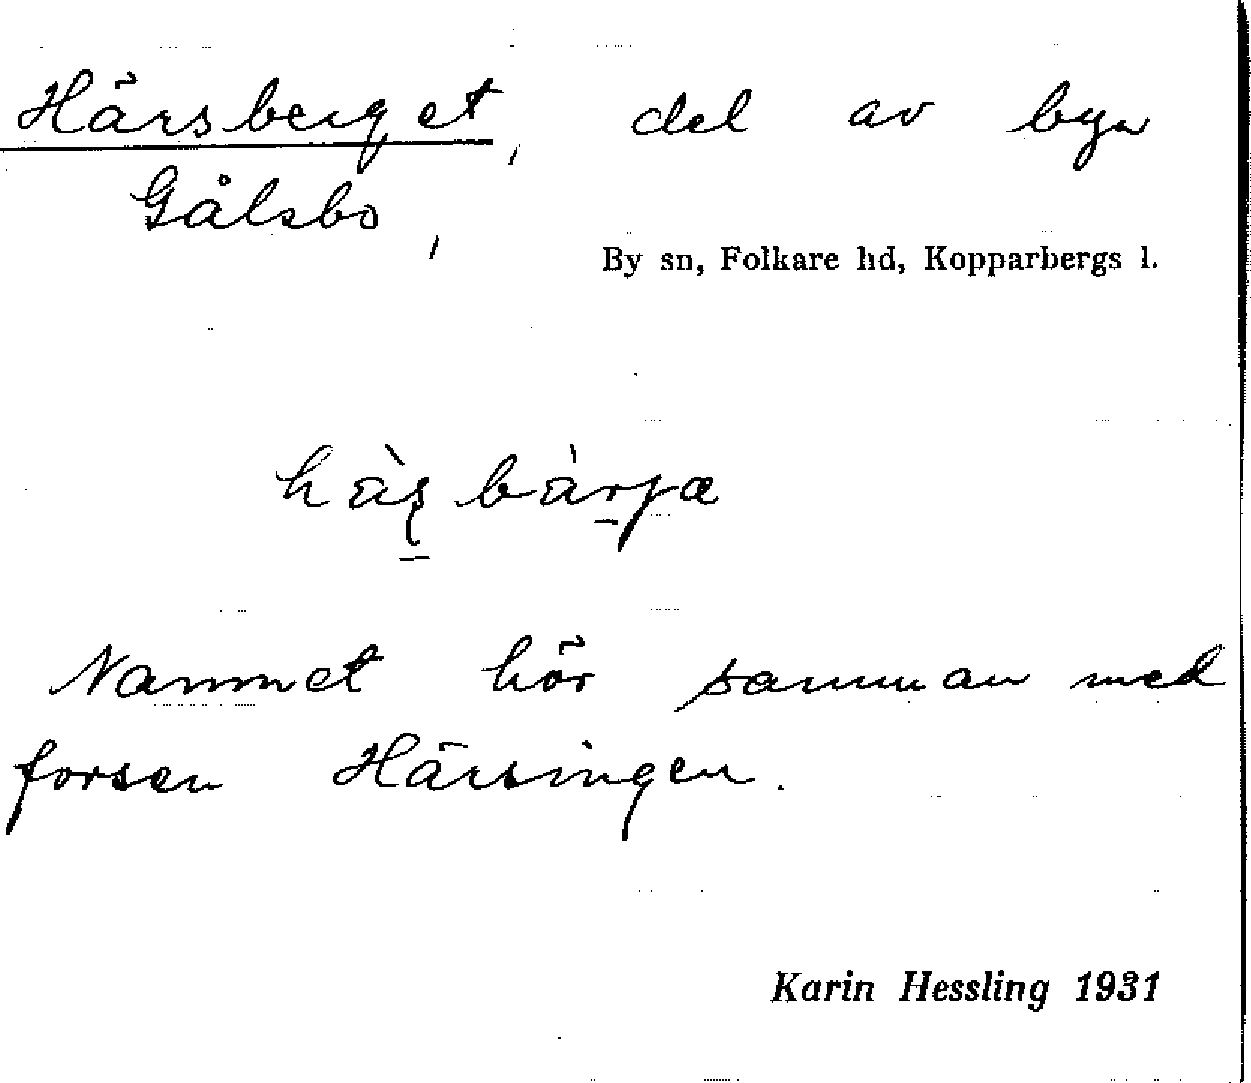 Härsberget, del av byn
Gålsbo,
By sn, Folkare hd, Kopparbergs l.
Namnet hör samman med
forsen Härsingen.
Karin Hessling 1931